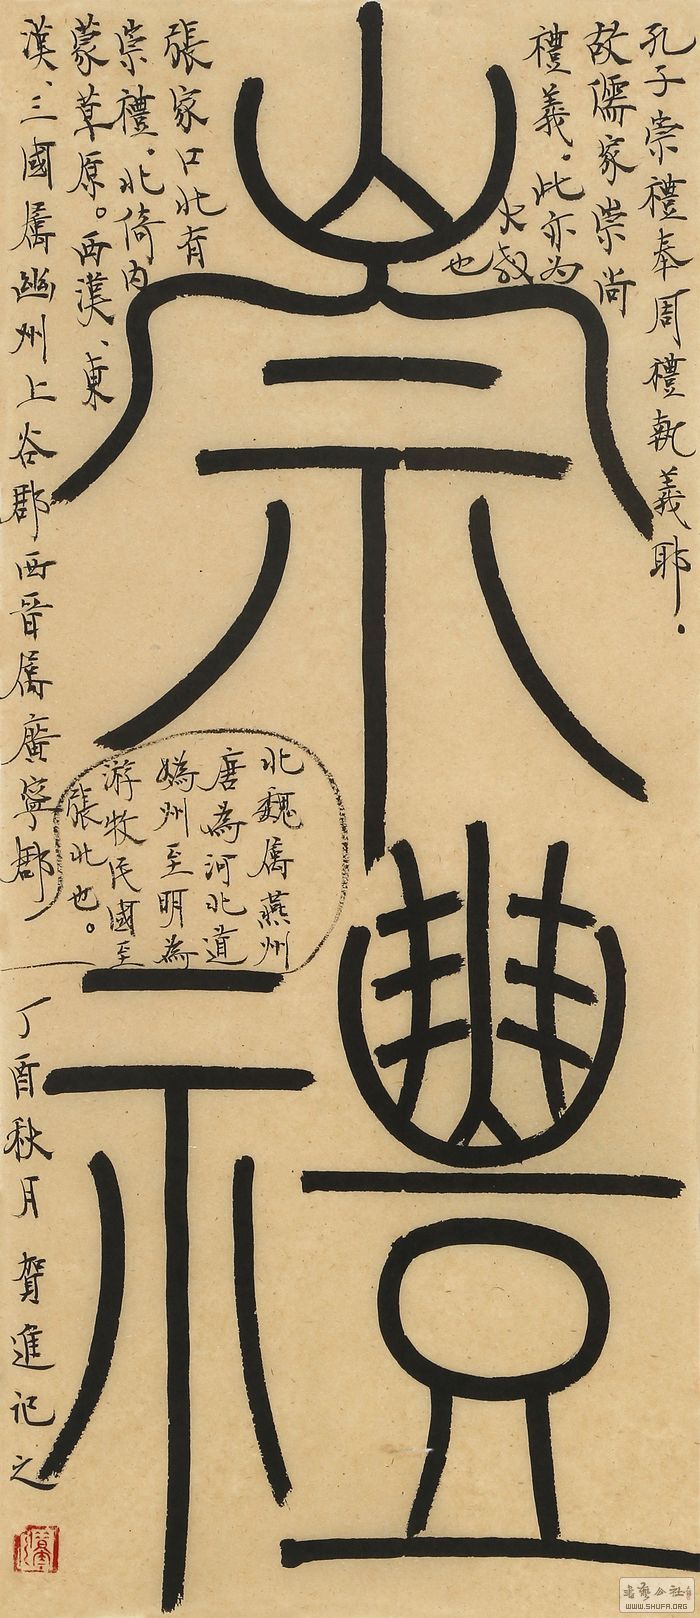 崇禮
孔子崇禮奉周禮執義耶。
故儒家崇尚
禮義。此亦为
大教
也
張家口北有
崇禮。北倚内
蒙草原。西漢、東
漢、三國屬幽州上谷郡西晉屬廣寧郡
北魏屬燕州
唐為河北道
媯州至明為
游牧民國至
張北也。
丁酉秋月 賀進記之
书艺公社
WWW.SHUFA.ORG